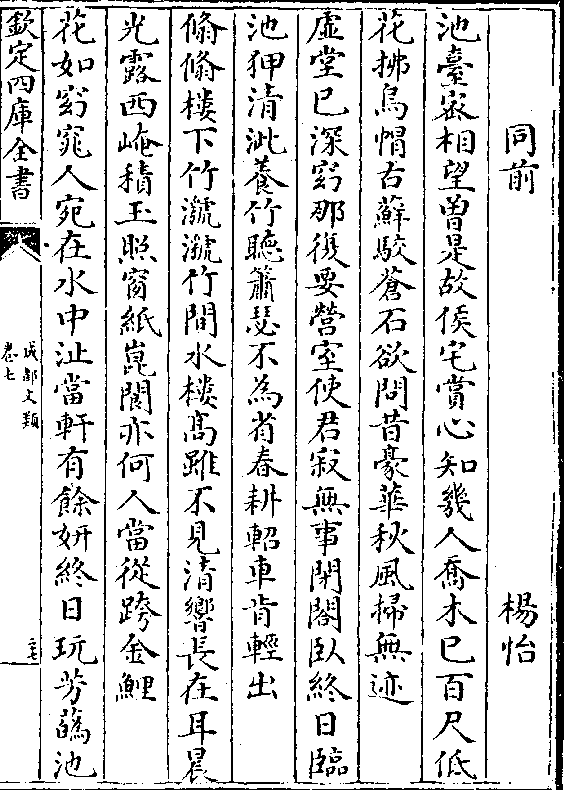 同前 楊怡
池臺宻相望曽是故侯宅賞心知幾人喬木已百尺低
花拂烏帽古蘚駮蒼石欲問昔豪華秋風掃無迹
虛堂已深窈那復要營室使君寂無事閉閤臥終日臨
池狎清泚養竹聽簫瑟不為省春耕軺車肯輕出
翛翛樓下竹㶁㶁竹間水樓髙雖不見清響長在耳晨
光露西崦積玉照窗紙崑閬亦何人當從跨金鯉
花如窈窕人宛在水中沚當軒有餘妍終日玩芳蘤池
欽定四庫全書
成都文類
卷七